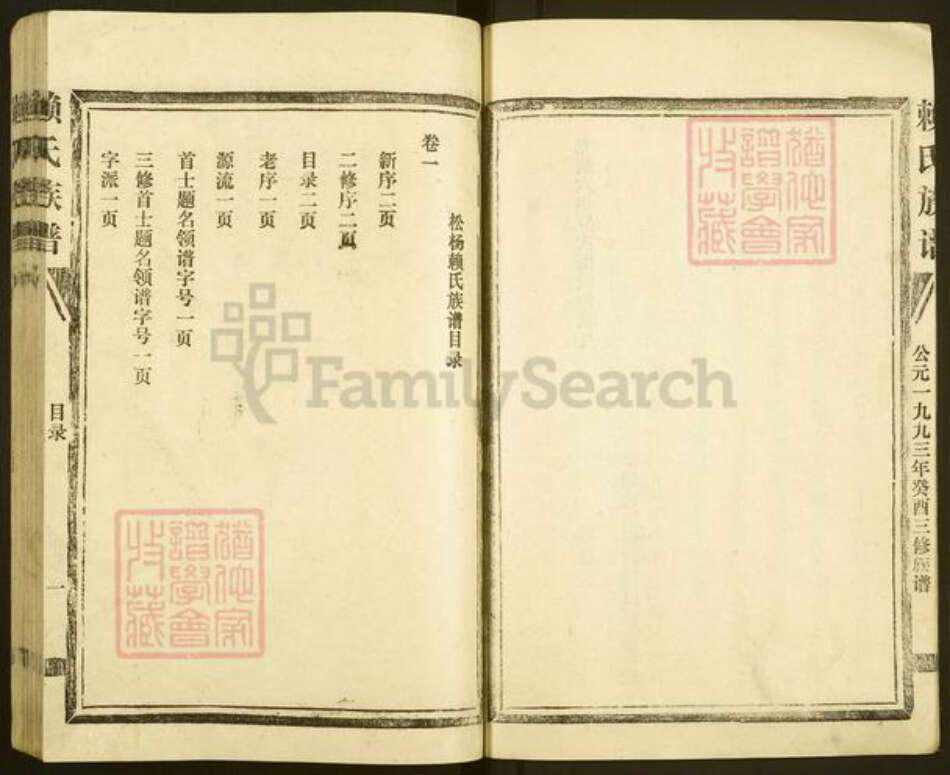 赖氏族谱
公元一九九三年癸酉三修族谱
松杨赖氏族谱目录
卷一
新序二页
二修序二页
目录二页
老序一页
源流一页
首士题名领谱字号一页
三修首士题名领谱字号一页
字派一页
赖氏族谱
目录
一
FamilySearch